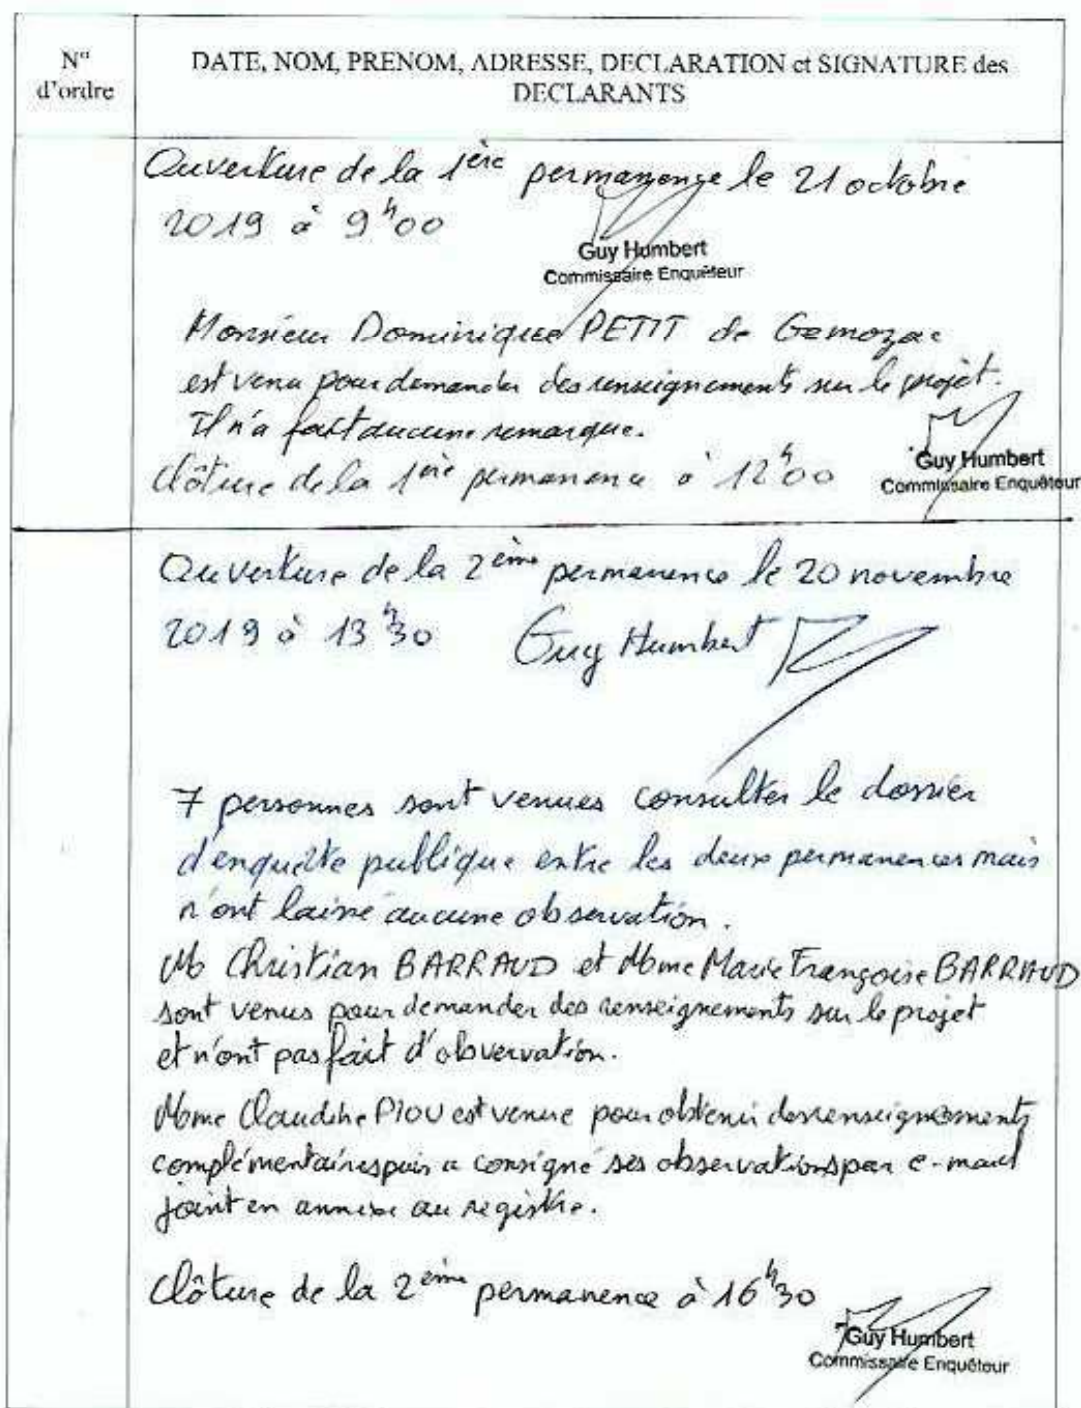 N° d'ordre
DATE, NOM, PRENOM, ADRESSE, DECLARATION et SIGNATURE des
DECLARANTS
Ouverture de la 1ère permanence le 21 octobre
2019 à 9h00
Guy Humbert
Commissaire Enquêteur
Monsieur Dominique PETIT de Gemozac
est venu pour demander des renseignements sur le projet.
Il n'a fait aucune remarque.
Clôture de la 1ère permanence à 12h00
Guy Humbert
Commissaire Enquêteur
Ouverture de la 2ème permanence le 20 novembre
2019 à 13h30 Guy Humbert
7 personnes sont venues consulter le dossier
d'enquête publique entre les deux permanences mais
n'ont laissé aucune observation.
M Christian BARRAUD et Mme Marie Françoise BARRAUD
sont venus pour demander des renseignements sur le projet
et n'ont pas fait d'obvervation.
Mme Claudine PIOU est venue pour obtenir des renseignements
complémentaires puis a consigné ses observations par e-mail
joint en annexe au registre.
Clôture de la 2ème permanence à 16h30
Guy Humbert
Commissaire Enquêteur